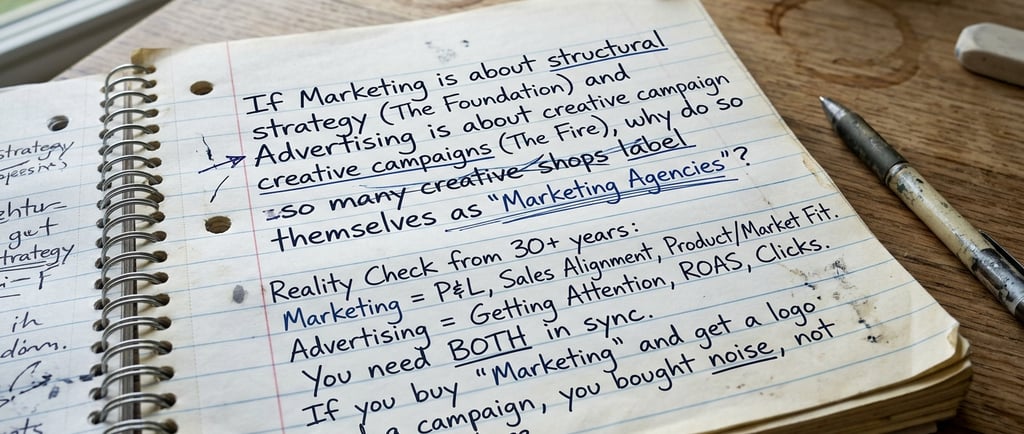 strategy
gut
strategy
If Marketing is about structural
strategy (The Foundation) and
Advertising is about creative campaign
creative campaigns (The Fire), why do so
so many creative shops label
themselves as "Marketing Agencies"?
Reality Check from 30+ years:
Marketing = P&L, Sales Alignment, Product/Market Fit.
Advertising = Getting Attention, ROAS, Clicks.
You need BOTH in sync.
If you buy "Marketing" and get a logo
a campaign, you bought noise, not